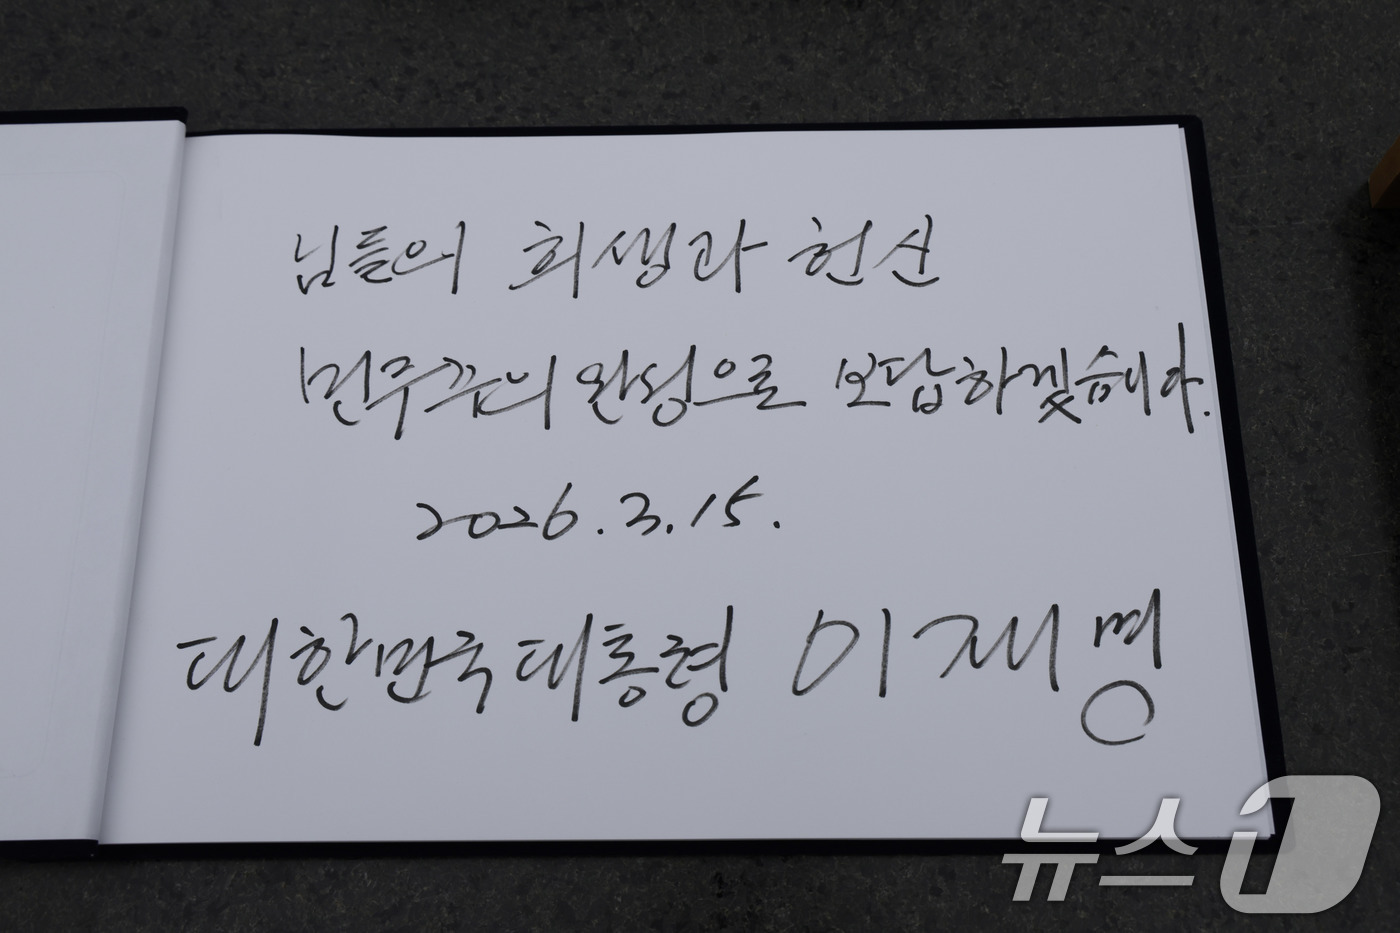 님들의 희생과 헌신
민주주의 완성으로 보답하겠습니다.
2026.3.15.
대한민국 대통령 이재명
뉴스1